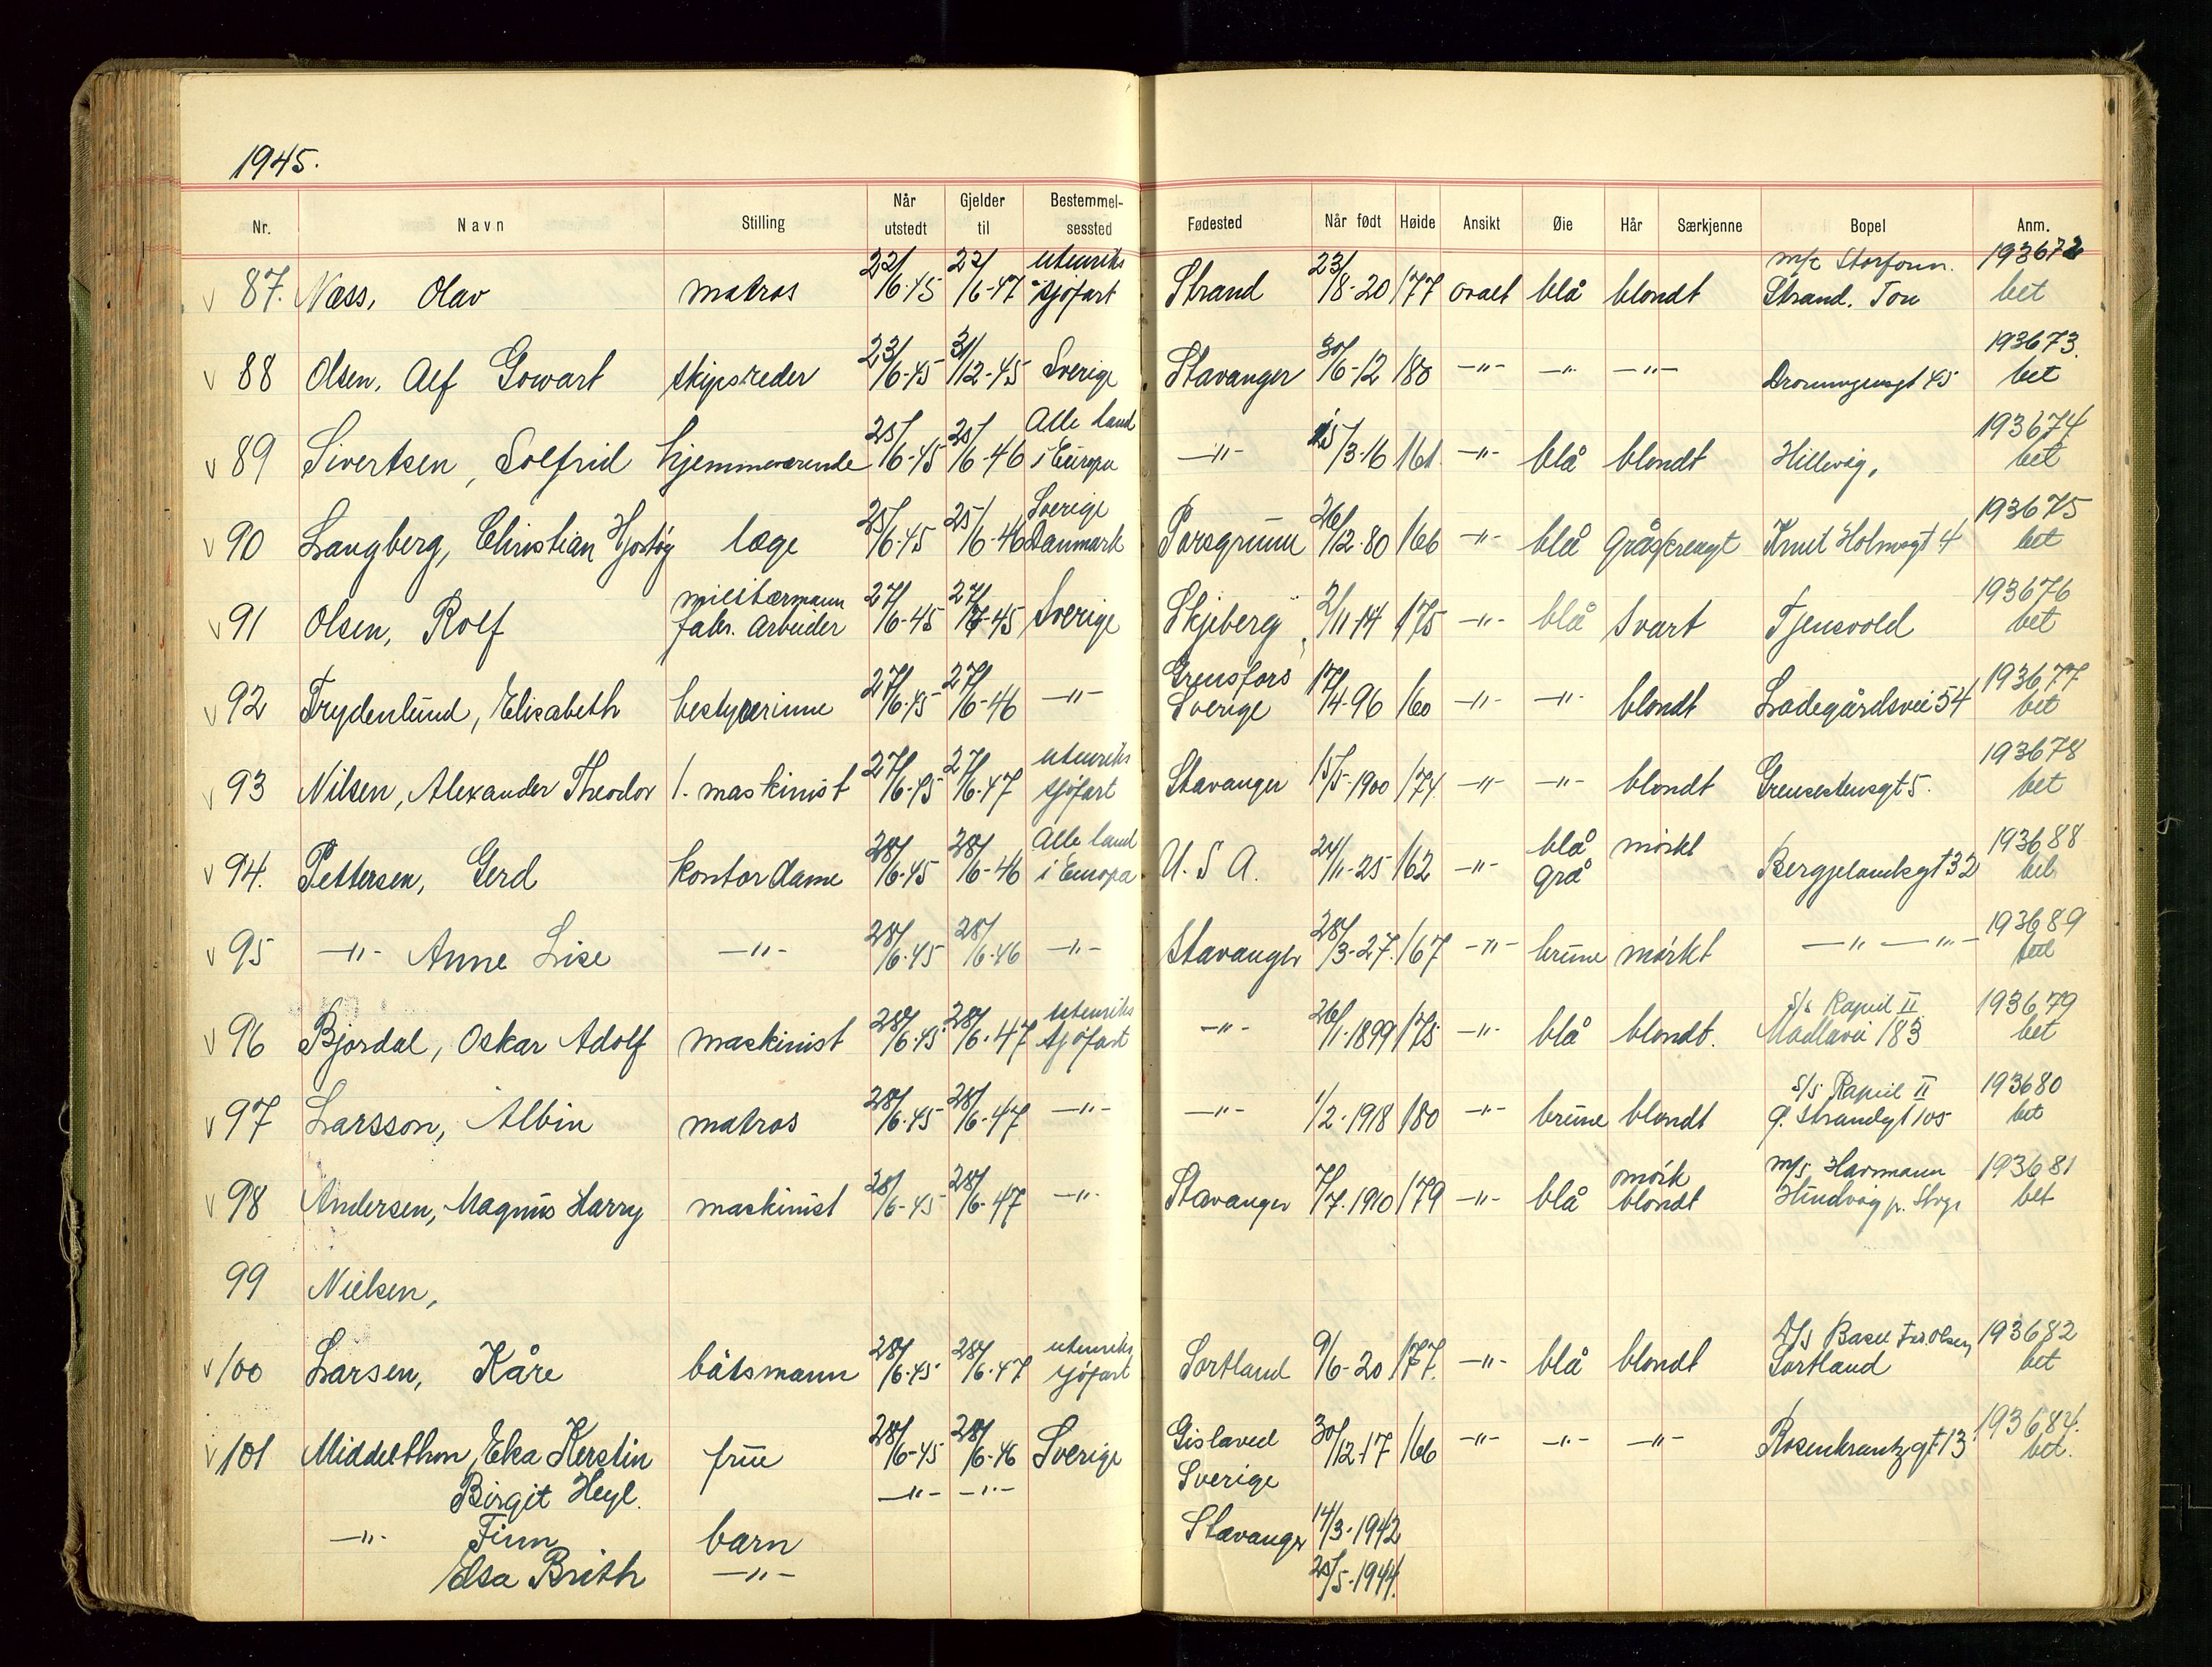 1945.
Nr. Navn Stilling Når utstedt Gjelder til Bestemmelsessted Fødested Når født Høide Ansikt Øie Hår Særkjenne Bopel Anm.
87. Næss, Olav matros 22/6-45 22/6-47 utenriks sjöfart Strand 23/8-20 177 ovalt blå blondt Strand. Tou 193672 bet
88 Olsen, Alf Gowart skipsreder 23/6-45 31/12-45 Sverige Stavanger 30/6-12 180 -"- -"- -"- Dronningensgt 45 193673. bet
89 Sivertsen, Solfrid hjemmeværende 25/6-45 25/6-46 Alle land i Europa -"- 15/3-16 161 -"- blå blondt Hillevåg, 193674 bet
90 Langberg, Christian læge 25/6-45 25/6-46 Sverige Danmark Porsgrunn 26/12-80 166 -"- blå gråsprengt Knut Holmsgt 4 193675 bet
91 Olsen, Rolf militærmann fabr. arbeider 27/6-45 27/7-45 Sverige Skjeberg 2/11-14 175 -"- blå svart Tjensvold 193676 bet
92 Frydenlund, Elisabeth bestyrerinne 27/6-45 27/6-46 -"- Grensfors Sverige 17/4-96 160 -"- -"- blondt Ladegårdsvei 54 193677 bet
93 Nilsen, Alexander Theodor 1. maskinist 27/6-45 27/6-47 utenriks sjöfart Stavanger 15/5-1900 174 -"- -"- blondt Grensestensgt 5. 193678 bet
94. Pettersen, Gerd kontordame 28/6-45 28/6-46 Alle land i Europa U.S.A. 24/11-25 162 -"- blå grå mörkt Bergjelandsgt 32 193688 bet
95 -"- Anne Lise -"- 28/6-45 28/6-46 -"- Stavanger 28/3-27. 167 -"- brune mörkt -"- -"- 193689 bet
96 Bjordal, Oskar Adolf maskinist 28/6-45 28/6-47 utenriks sjöfart -"- 26/1-1899 175 -"- blå blondt. s/s Rapid II Madlavei 183 193679 bet
97 Larsson, Albin matros 28/6-45 28/6-47 -"- -"- 1/2-1918 180 -"- brune blondt s/s Rapid II Strandgt 105 193680 bet
98 Andersen, Magnus Harry maskinist 28/6-45 28/6-47 -"- Stavanger 7/7-1910 179 -"- blå mörk blondt m/s Havmann Hundvåg p. Stvgr 193681 bet
99 Nielsen,
100 Larsen, Kåre båtsmann 28/6-45 28/6-47 utenriks sjöfart Sortland 9/6-20 177. -"- blå blondt Sortland 193682 bet
101 Middelthon, Elsa Kerstin frue 28/6-45 28/6-46 Sverige Gislaved Sverige 30/12-17 166 -"- -"- -"- Rosenkrantzgt 13 193684. bet.
Birgit Heyl. -"- -"-
-"- Finn barn Stavanger 14/3-1942
Elsa Brith -"- 25/5-1944.